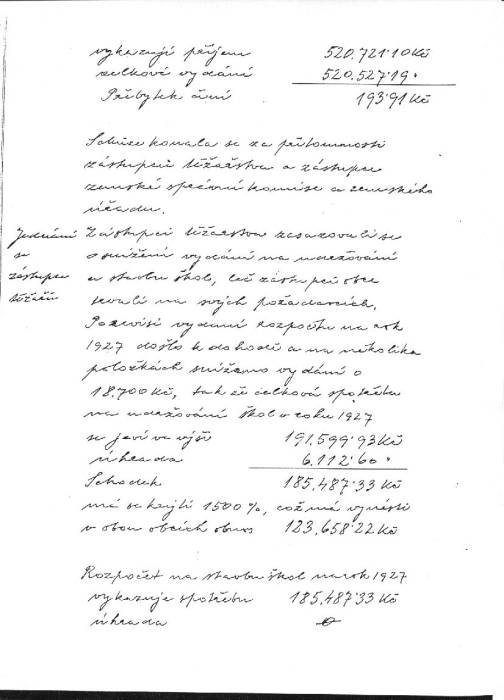 vykazují příjem 520.721·10 Kč
celkové vydání 520.527·19 "
Přebytek činí 193·91 Kč
Schůze konala se za přítomnosti
zástupců těžařstva a zástupce
zemské správní komise a zemského
úřadu.
Jednání
se
zástupci
těžařů
Zástupci těžařstva zasazovali se
o snížení vydání na udržování
a stavbu škol, leč zástupci obce
trvali na svých požadavcích.
Po revisi vydání rozpočtu na rok
1927 došlo k dohodě a na několika
položkách sníženo vydání o
18.700 Kč, tak že celková spotřeba
na udržování škol v roku 1927
se jeví ve výši 191.599·93 Kč
úhrada 6.112·60 "
Schodek 185.487·33 Kč
má se krýti 1500 %, což má vynésti
v obou obcích obnos 123.658·22 Kč
Rozpočet na stavbu škol na rok 1927
vykazuje spotřebu 185.487·33 Kč
úhrada